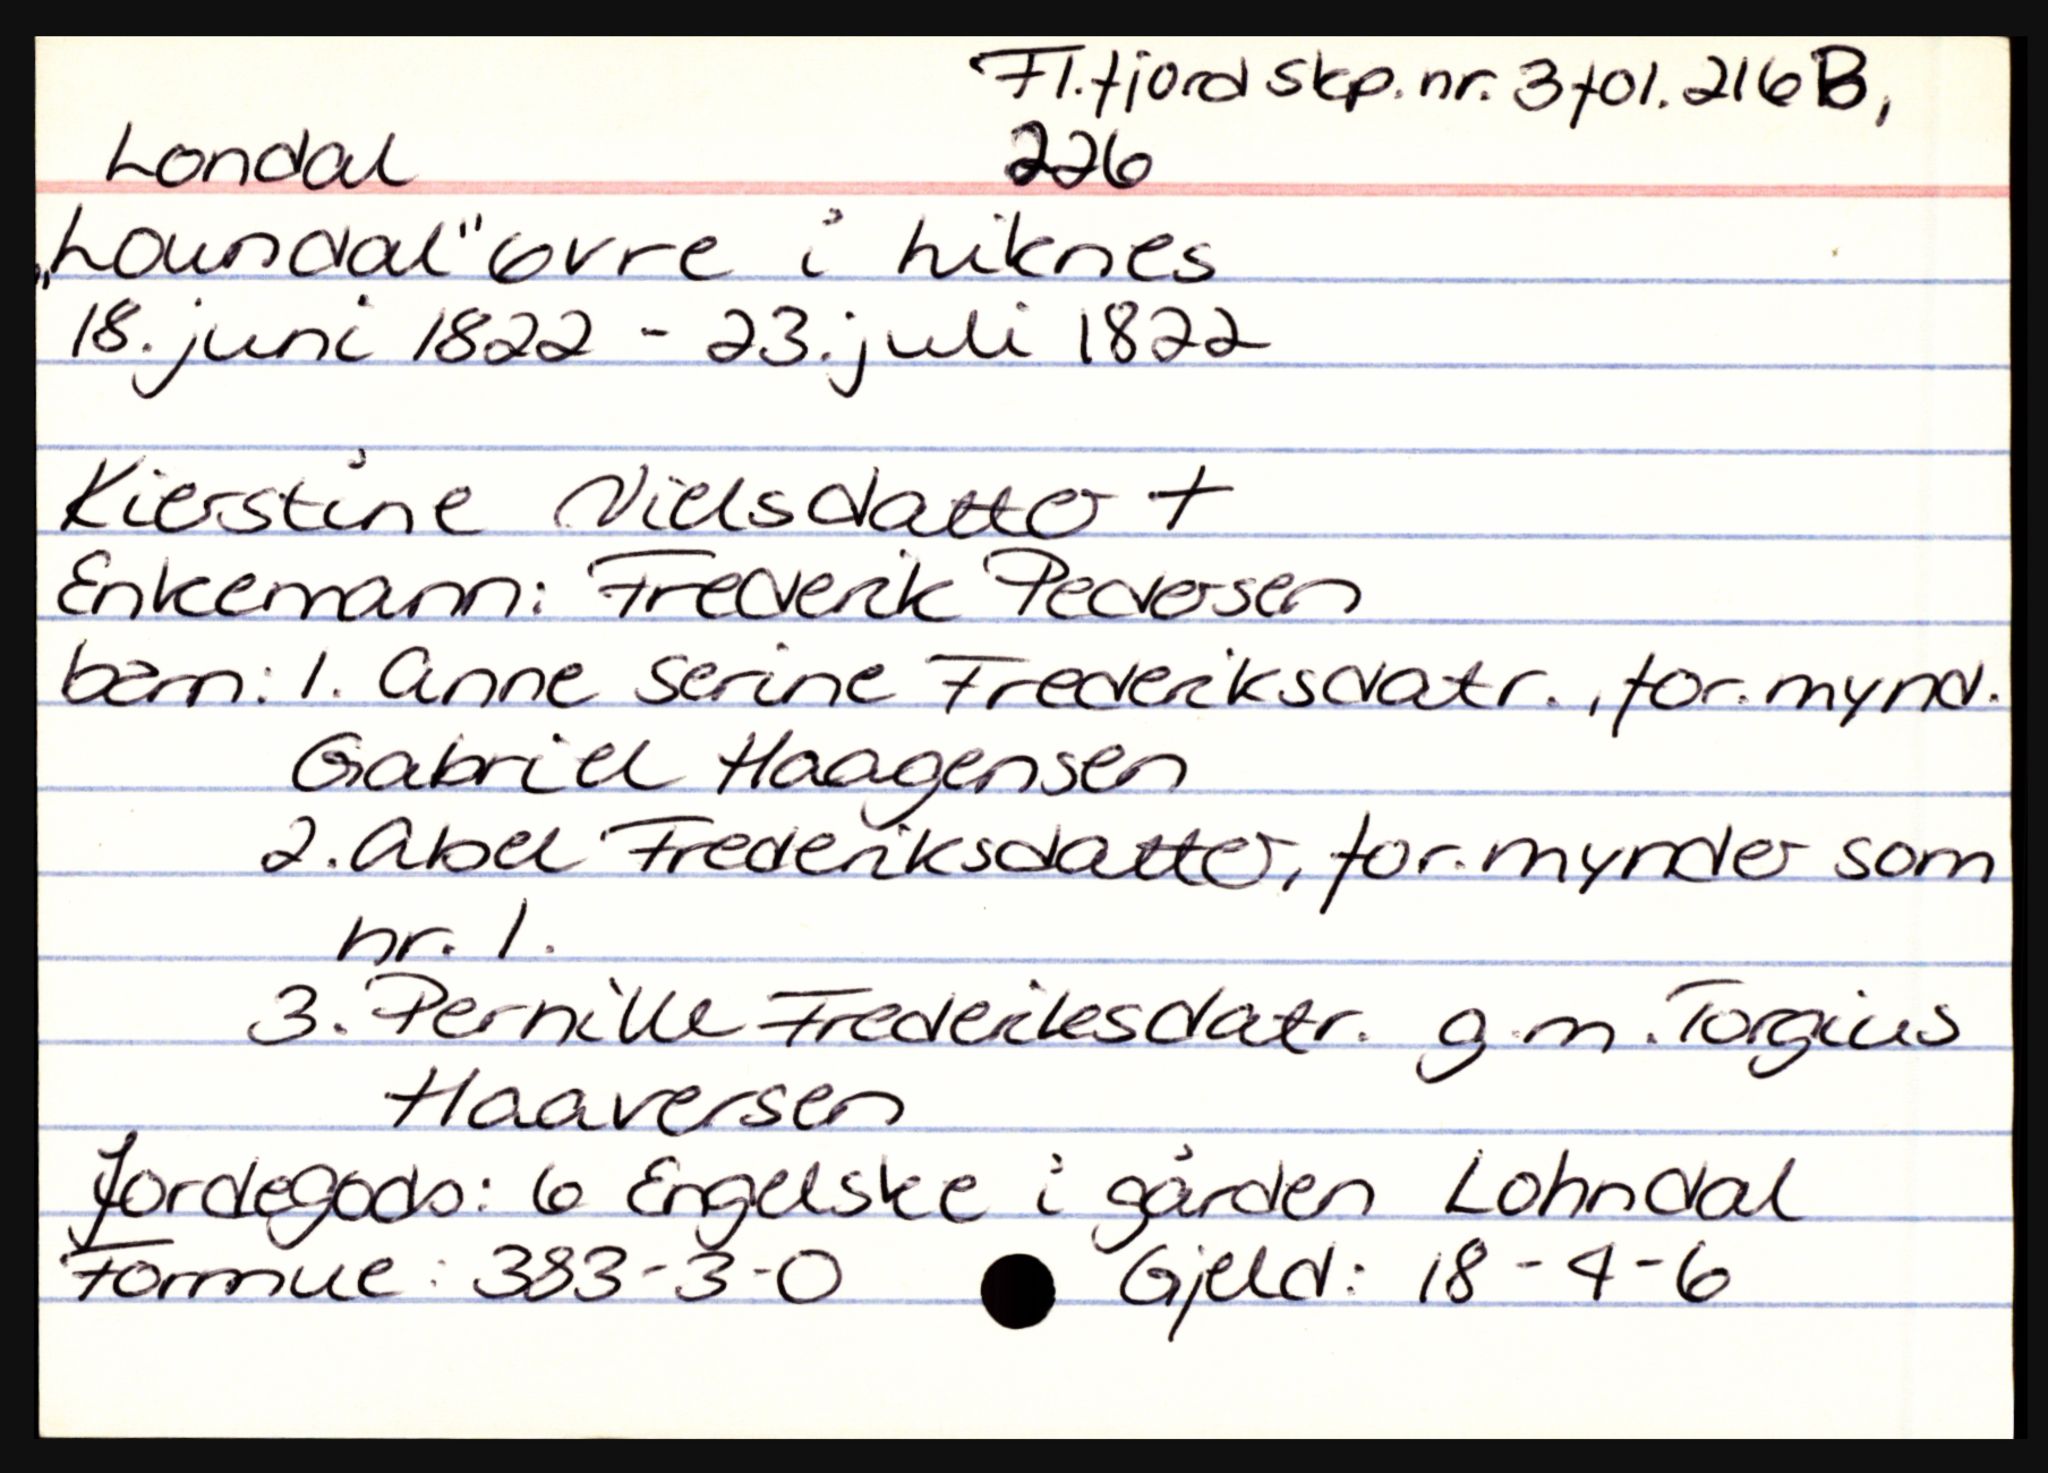 Fl.fjord skp. nr. 3 fol. 216B,
Londal 226
„Loundal" øvre i Liknes
18. juni 1822 - 23. juli 1822
Kierstine Nielsdatter +
Enkemann: Frederik Pedersen
barn: 1. Anne Serine Frederiksdatr., for.mynd.
Gabriel Haagensen
2. Abel Frederiksdatter, for.mynder som
nr. 1.
3. Pernille Frederiksdatr. g.m. Torgius
Haaversen
Jordegods: 6 Engelske i gården Lohndal
Formue: 383-3-0 Gjeld: 18-4-6